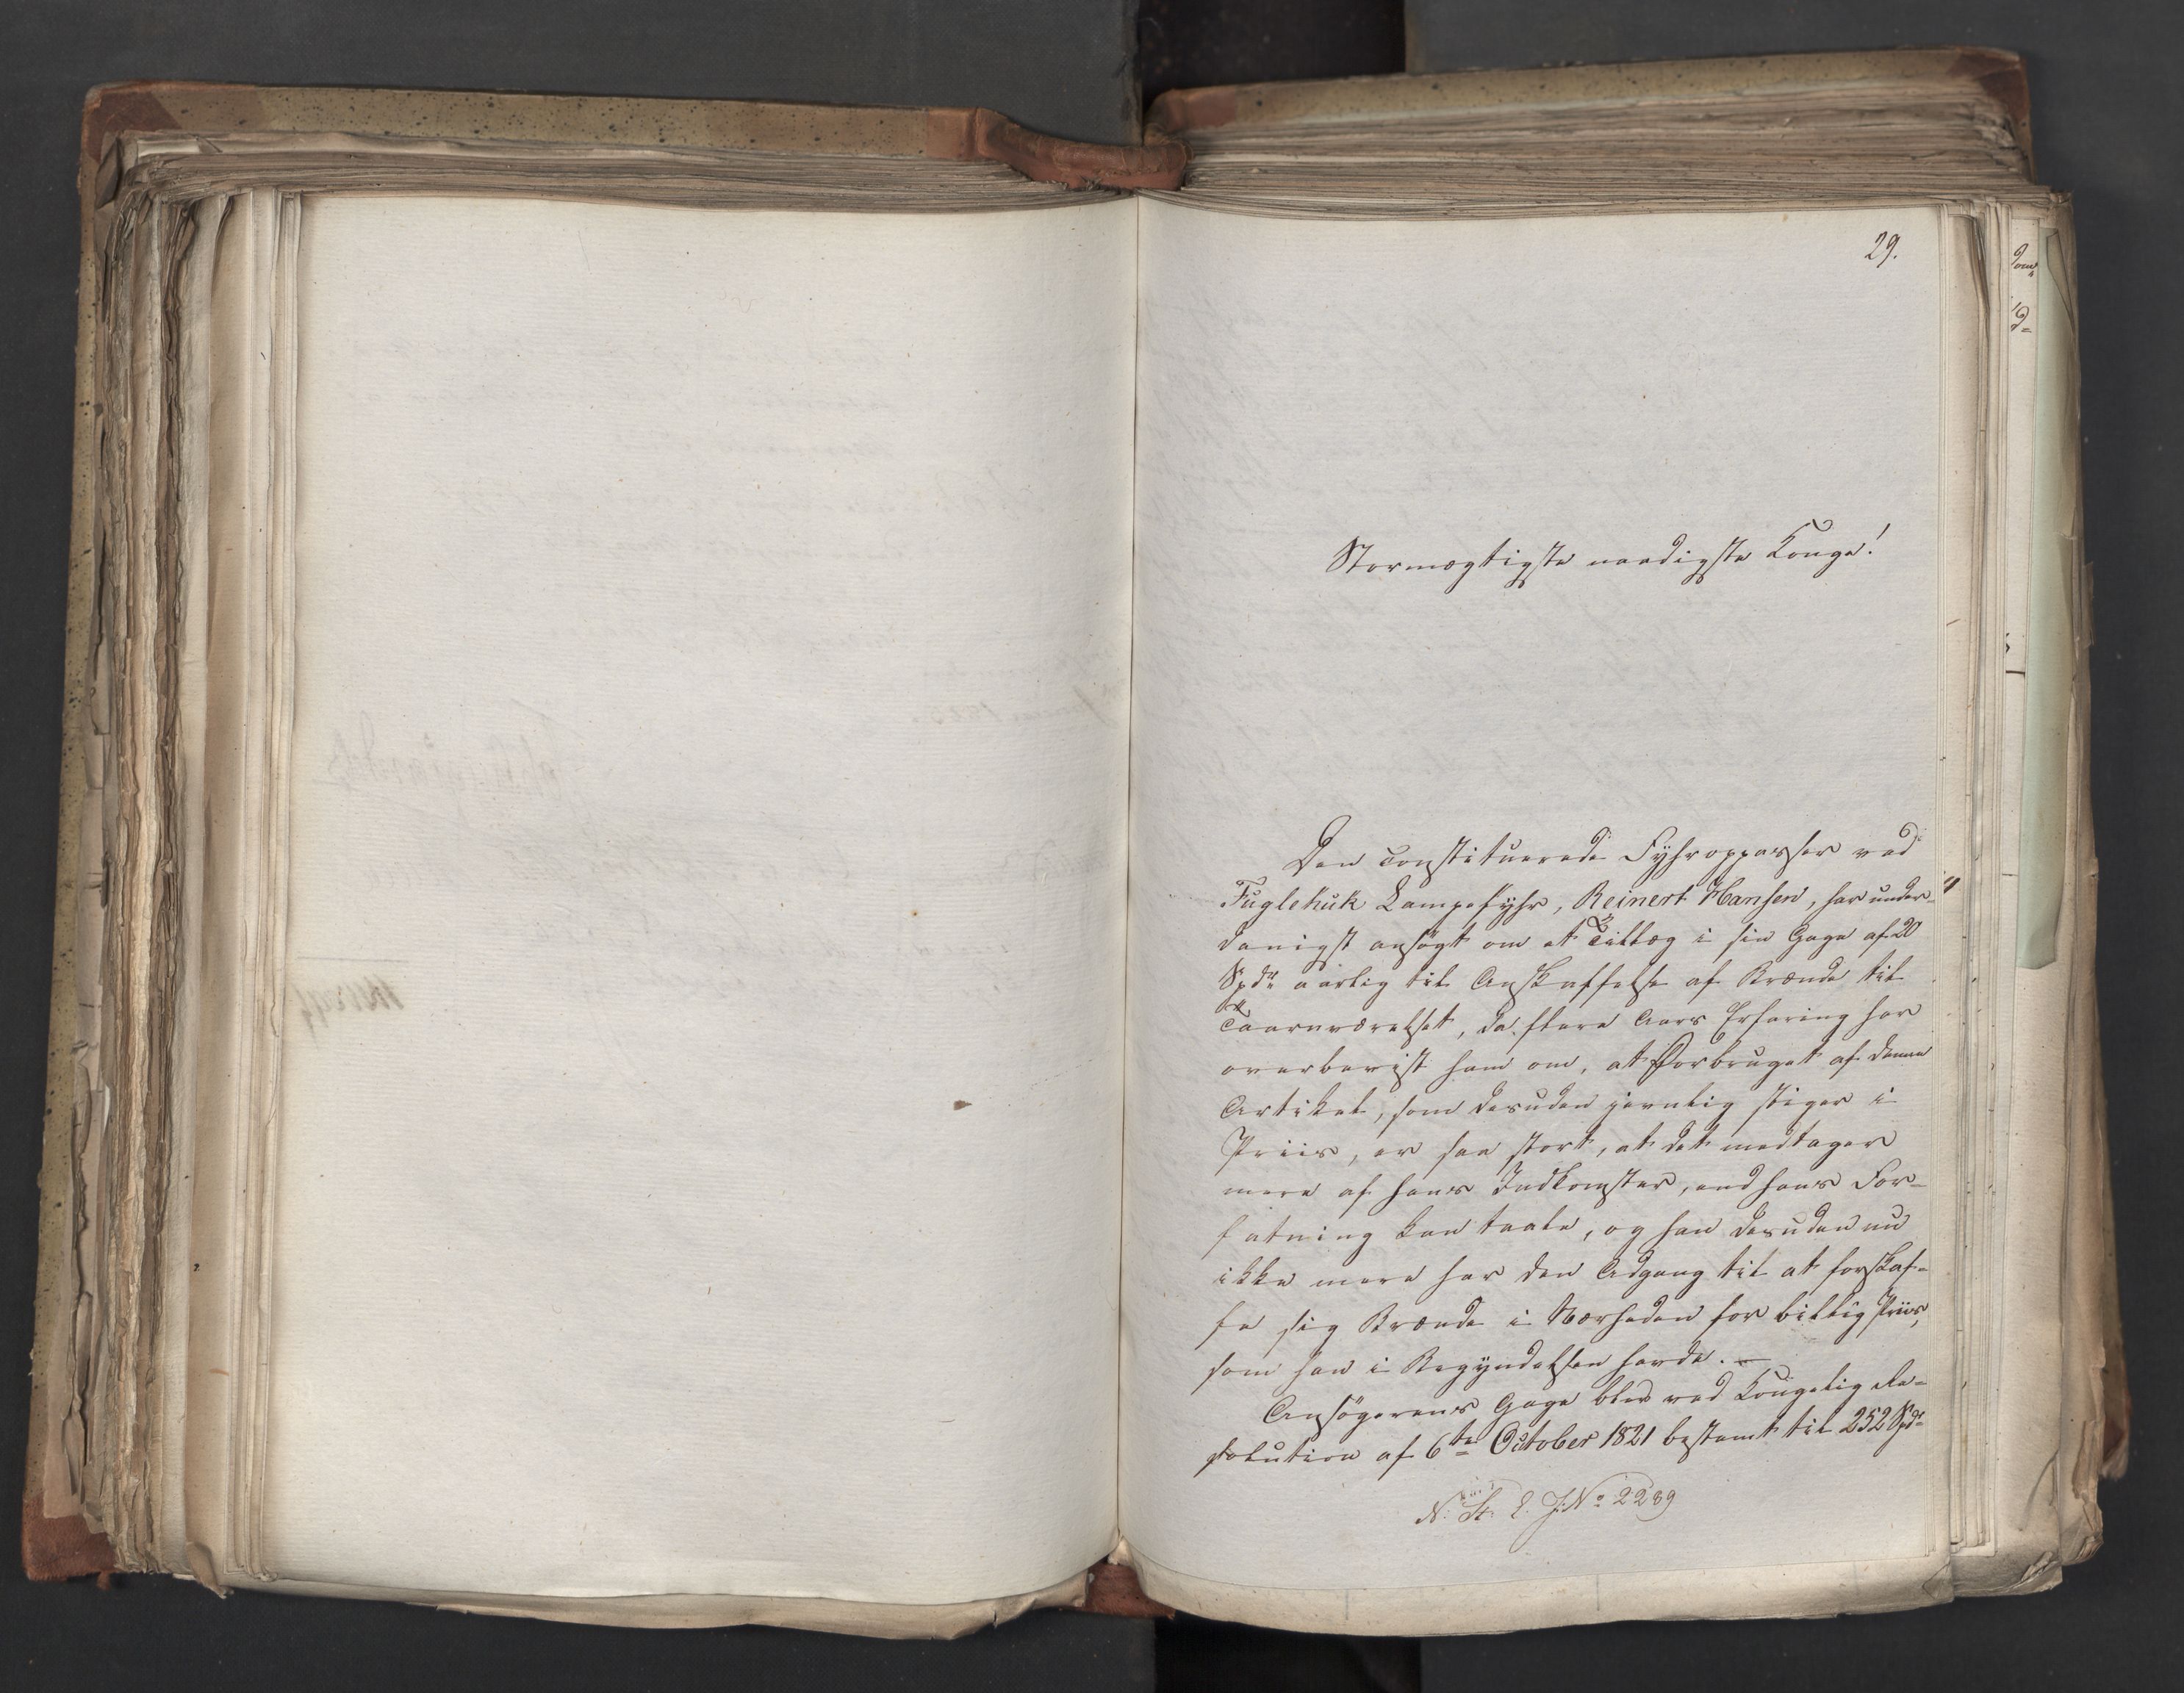 29.
Stormægtigste naadigste Konge!
Den constituerede Fyhropparser ved
Fuglehuk Lampefyhr, Reinert Hansen, har under-
danigst ansögt om et Tillæg i sin Gage af 20
Spdr aarlig til Anskaffelse af Brænde til
Taarnværelset, da flere Aars Erfaring har
overbeviist ham om, at Forbruget af denne
Artikel, som desuden jevnlig stiger i
Priis, er saa stort, at det medtager
mere af hans Indkomster, end hans For-
fatning kan taale, og han desuden nu
ikke mere har den Adgang til at forskaf-
fe sig Brænde i Nærheden for billig Priis,
som han i Begyndelsen havde. —
Ansögerens Gage blev ved Kongelig Re-
solution af 6te October 1821 bestemt til 252 Spd
N. St. E. J. No 2289